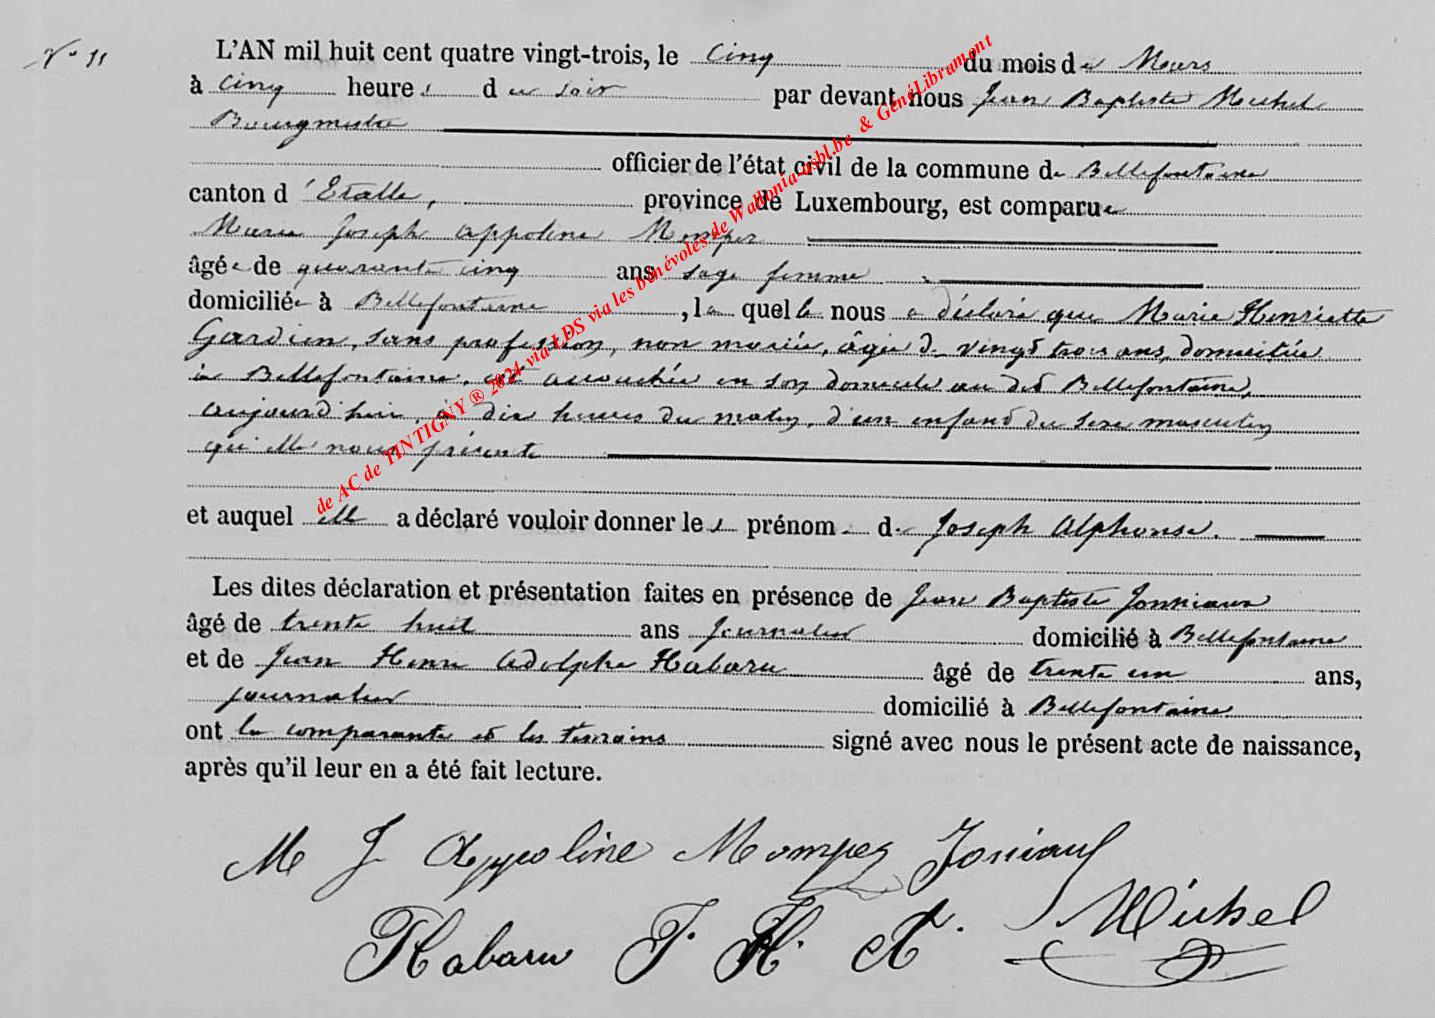 N° 11
L'AN mil huit cent quatre vingt-trois, le Cinq du mois de Mars
à Cinq heures du soir par devant nous Jean Baptiste Michel
Bourgmestre
officier de l'état civil de la commune de Bellefontaine
canton d'Etalle, province de Luxembourg, est comparue
Marie Joseph Appoline Momper
âgée de quarante cinq ans sage femme
domiciliée à Bellefontaine, la quelle nous a déclaré que Marie Henriette
Gardien, sans profession, non mariée, âgée de vingt trois ans, domiciliée
à Bellefontaine, est accouchée en son domicile au dit Bellefontaine,
aujourd'hui, à dix heures du matin, d'un enfant du sexe masculin
qu'elle nous présente
et auquel elle a déclaré vouloir donner les prénoms de Joseph Alphonse.
Les dites déclaration et présentation faites en présence de Jean Baptiste Josniaux
âgé de trente huit ans Journalier domicilié à Bellefontaine
et de Jean Henri Adolphe Habaru âgé de trente un ans,
journalier domicilié à Bellefontaine
ont la comparante et les témoins signé avec nous le présent acte de naissance,
après qu'il leur en a été fait lecture.
M J Appoline Momper Josniaux
Habaru J. H. A. Michel
de AC de TINTIGNY ® 2024 via LDS via les bénévoles de Wallonia asbl.be & GénéLibramont